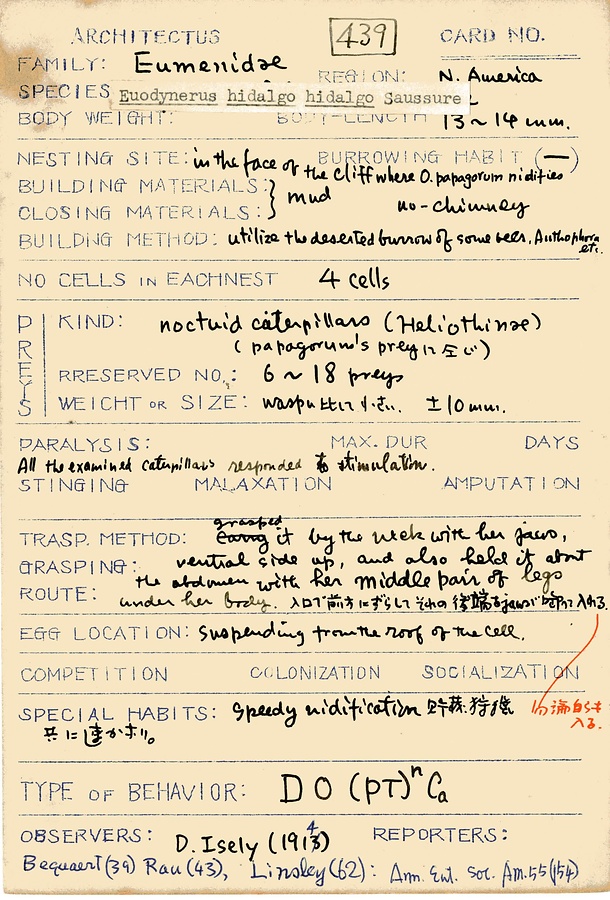 ARCHITECTUS 439 CARD NO.
FAMILY: Eumenidae REGION: N. America
SPECIES Euodynerus hidalgo hidalgo Saussure
BODY WEIGHT: BODY-LENGTH 13~14 mm.
NESTING SITE: in the face of the cliff where O. papagorum nidifies BURROWING HABIT (—)
BUILDING MATERIALS: } mud no-chimney
CLOSING MATERIALS:
BUILDING METHOD: utilize the deserted burrow of some bees, Anthophora etc.
NO CELLS IN EACHNEST 4 cells
PREYS
KIND: noctuid caterpillars (Heliothinae)
(papagorum's preyに同じ)
RRESERVED NO.: 6 ~ 18 preys
WEICHT OR SIZE: waspに比して小さい. ±10 mm.
PARALYSIS: MAX. DUR DAYS
All the examined caterpillars responded to stimulation.
STINGING MALAXATION AMPUTATION
TRASP. METHOD: grasped it by the neck with her jaws,
GRASPING: ventral side up, and also held it about
ROUTE: the abdomen with her middle pair of legs
under her body. 入口で前方にずらしてその後端をjawsで 入れる.
EGG LOCATION: suspending from the roof of the cell.
COMPETITION COLONIZATION SOCIALIZATION
SPECIAL HABITS: Speedy nidification 貯蔵. 狩猟
共に速かなり。
自らも
入る.
TYPE OF BEHAVIOR: DO (PT)ⁿ Ca
OBSERVERS: D. Isely (1914) REPORTERS:
Bequaert (39) Rau (43), Linsley (62): Ann. Ent. Soc. Am. 55 (154)